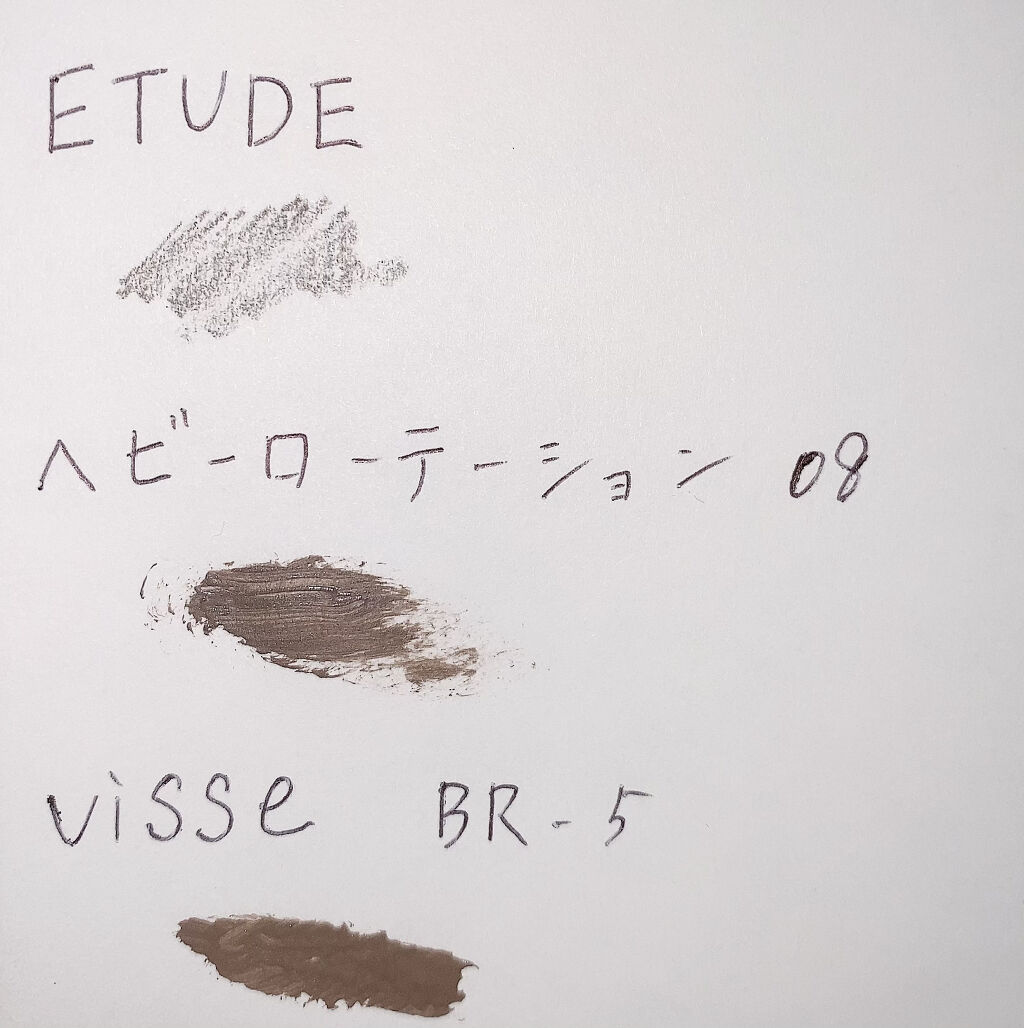 ETUDE
ヘビーローテーション 08
visse BR-5